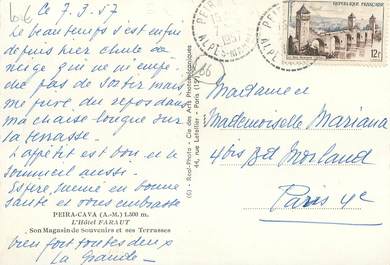 66
Ce 7.3.57
Le beau temps s'est enfui
depuis hier chute de
neige qui ne m'empê
che pas de sortir mais
me prive du repos dans
ma chaise longue sur
la terrasse.
L'appétit est bon et le
sommeil aussi.
Espère, mémé en bonne
santé et vous embrasse
PEIRA-CAVA (A.-M.) 1.500 m.
L'Hôtel FARAUT
Son Magasin de Souvenirs et ses Terrasses
bien fort toutes deux
La Grande
(6) - Real-Photo - Cie des Arts Photomécaniques
44, rue Letellier - Paris (15e)
PEIRA-CAVA
1957
ALPES-MARITIMES
REPUBLIQUE FRANÇAISE
12F
Madame et
Mademoiselle Mariana
4 bis Bd Morland
Paris 4e